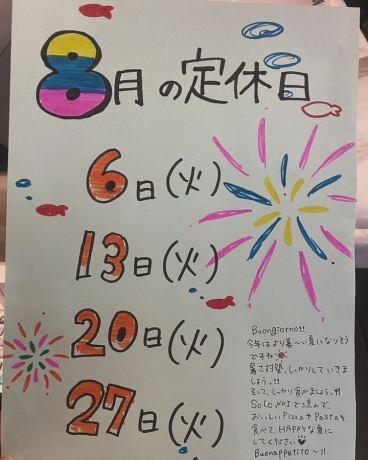 8月の定休日
6日(火)
13日(火)
20日(火)
27日(火)
Buongiorno!!
今年はより暑〜い夏になりそう
ですね
暑さ対策、しっかりしていきま
しょう。!!
そして、しっかり食べましょう。
SOLO NOIで涼んで、
おいしいPizza+Pastaを
食べて、HAPPYな夏に
してください
Buonappetito〜!!